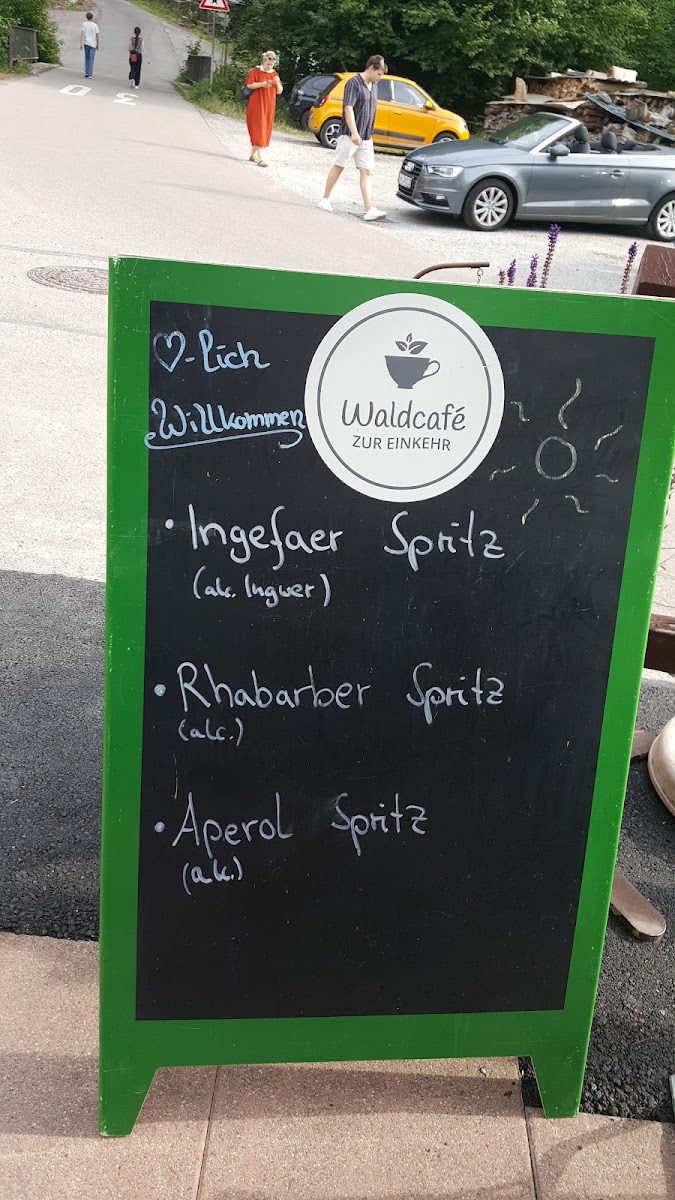 30
♡-lich
Willkommen
Waldcafé
ZUR EINKEHR
• Ingefaer Spritz
(alc. Ingwer)
• Rhabarber Spritz
(alc.)
• Aperol Spritz
(alc.)